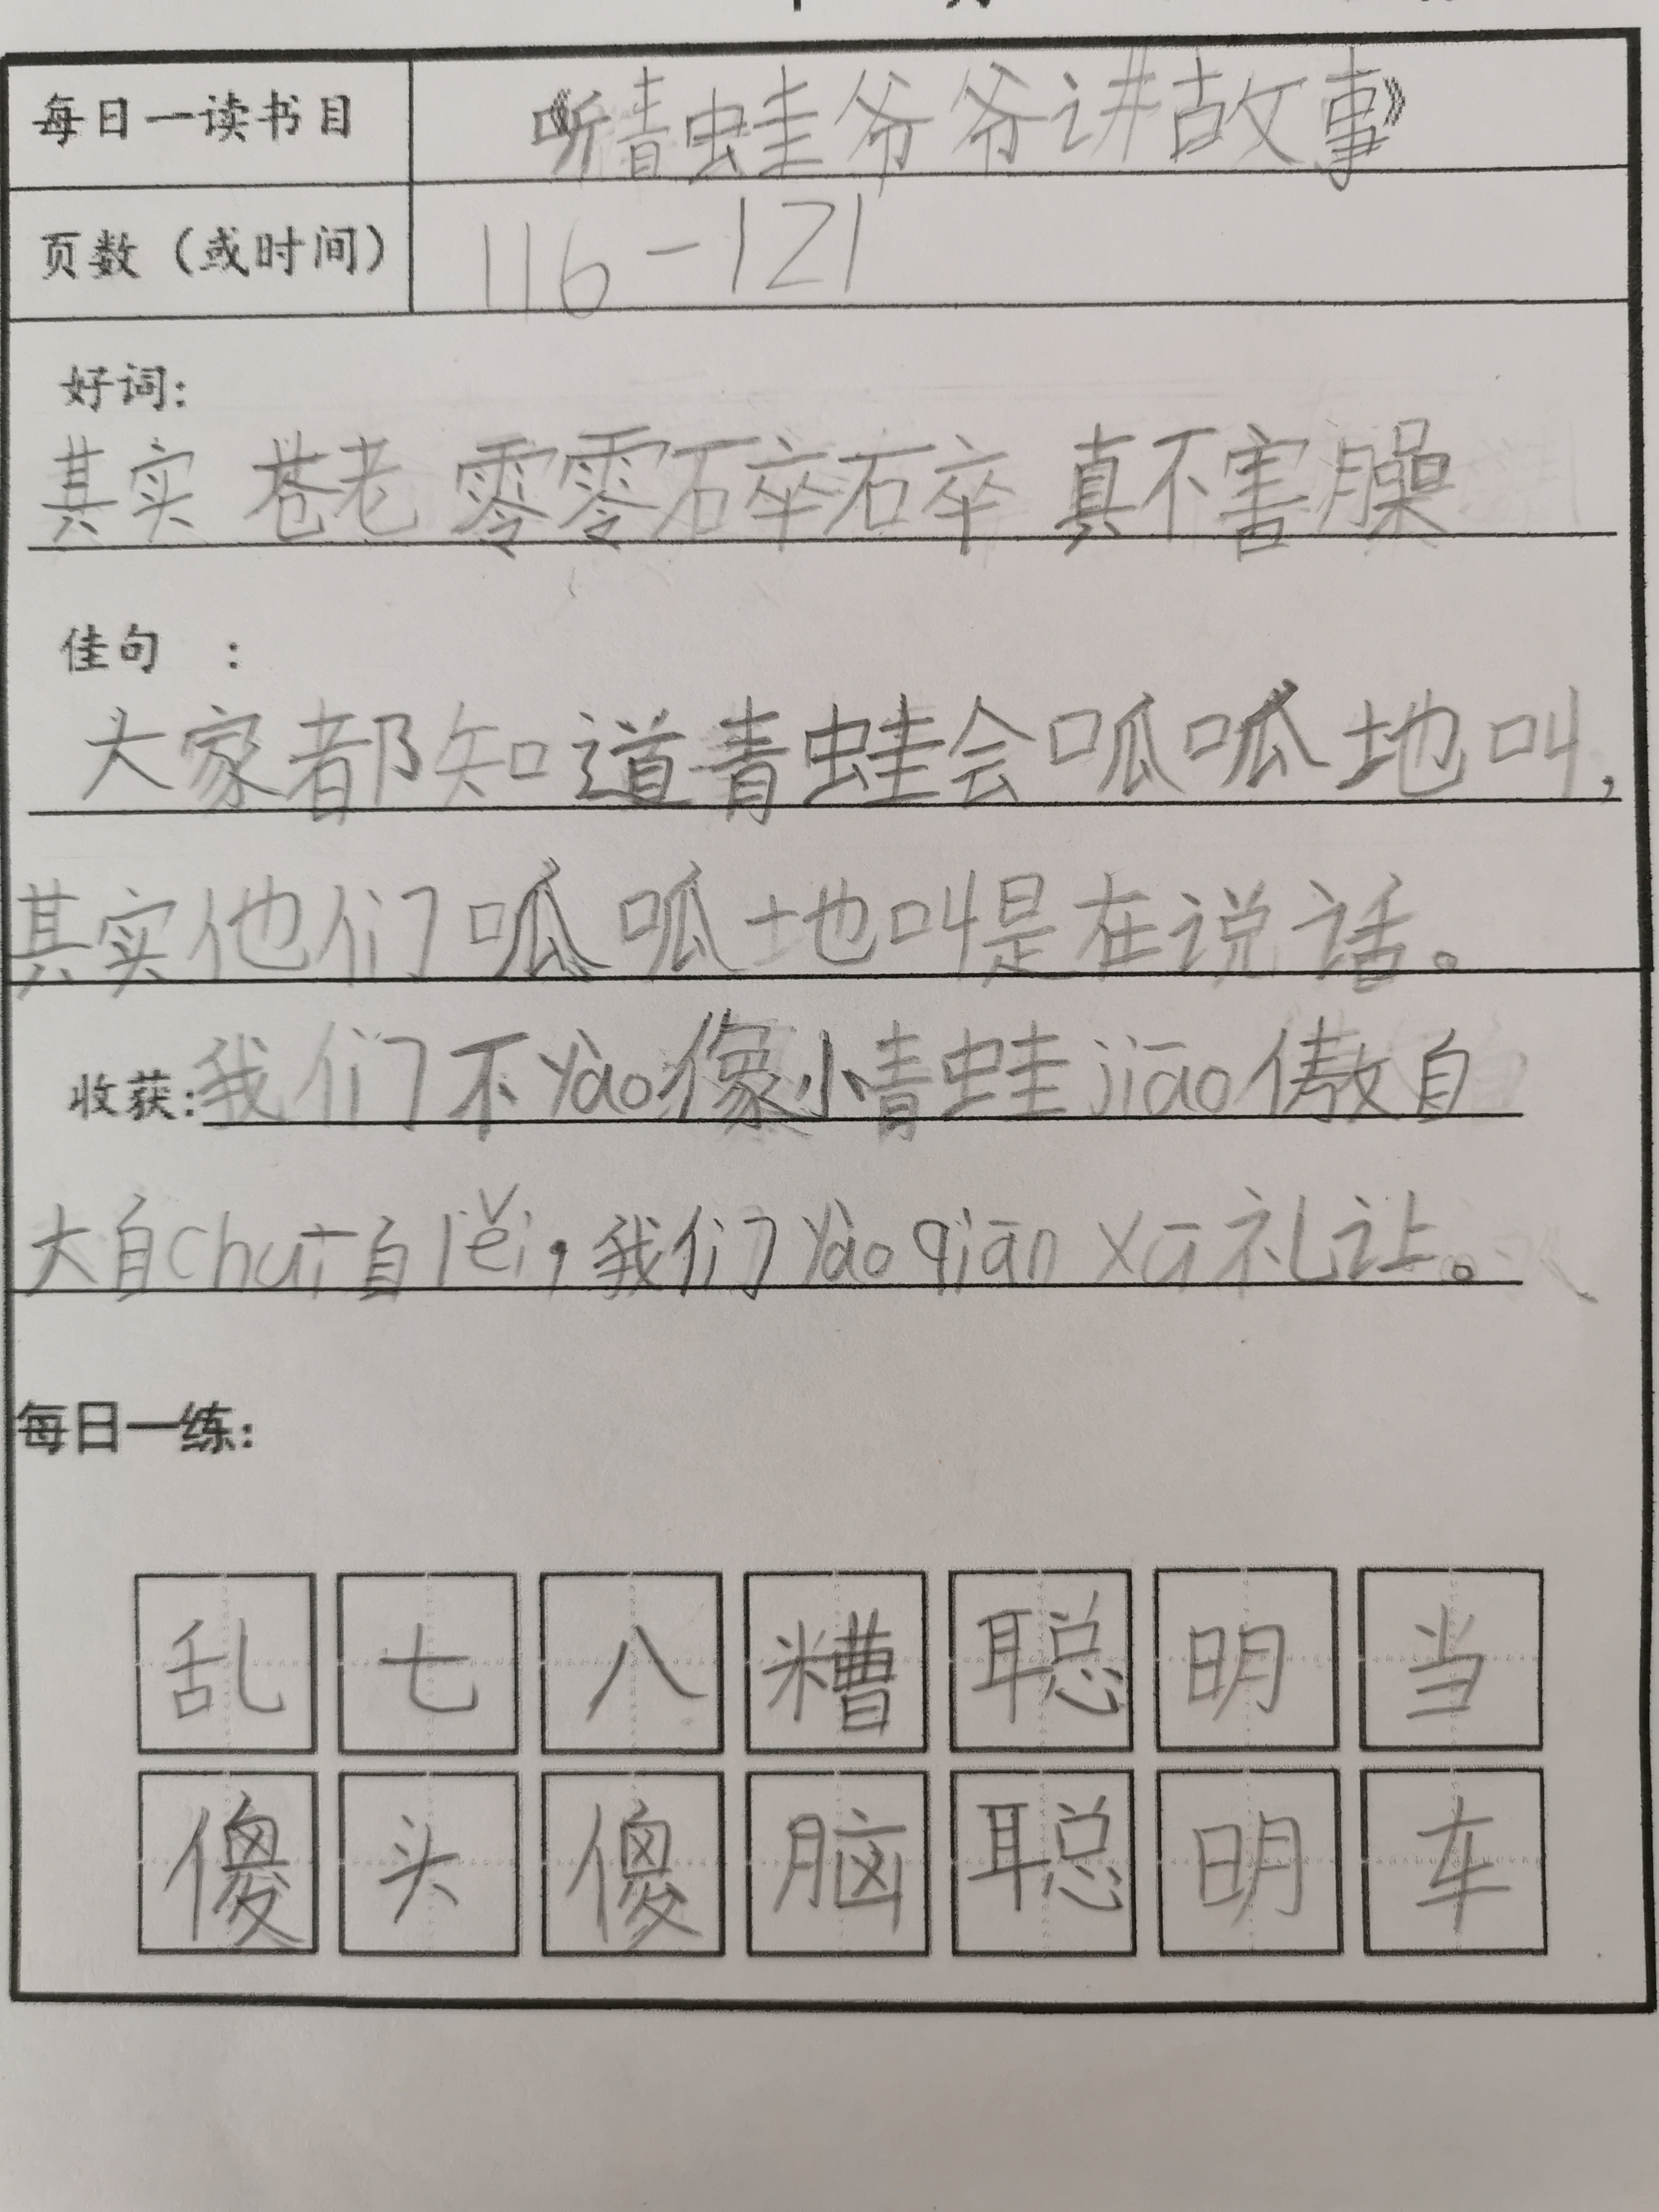 每日一读书目 《听青蛙爷爷讲故事》
页数（或时间） 116-121
好词：
其实 苍老 零零碎碎 真不害臊
佳句 ：
大家都知道青蛙会呱呱地叫，
其实他们呱呱地叫是在说话。
收获：我们不yào像小青蛙jiāo傲自
大自chuī自lěi，我们yào qiān xū礼让。
每日一练：
乱 七 八 糟 聪 明 当
傻 头 傻 脑 聪 明 车